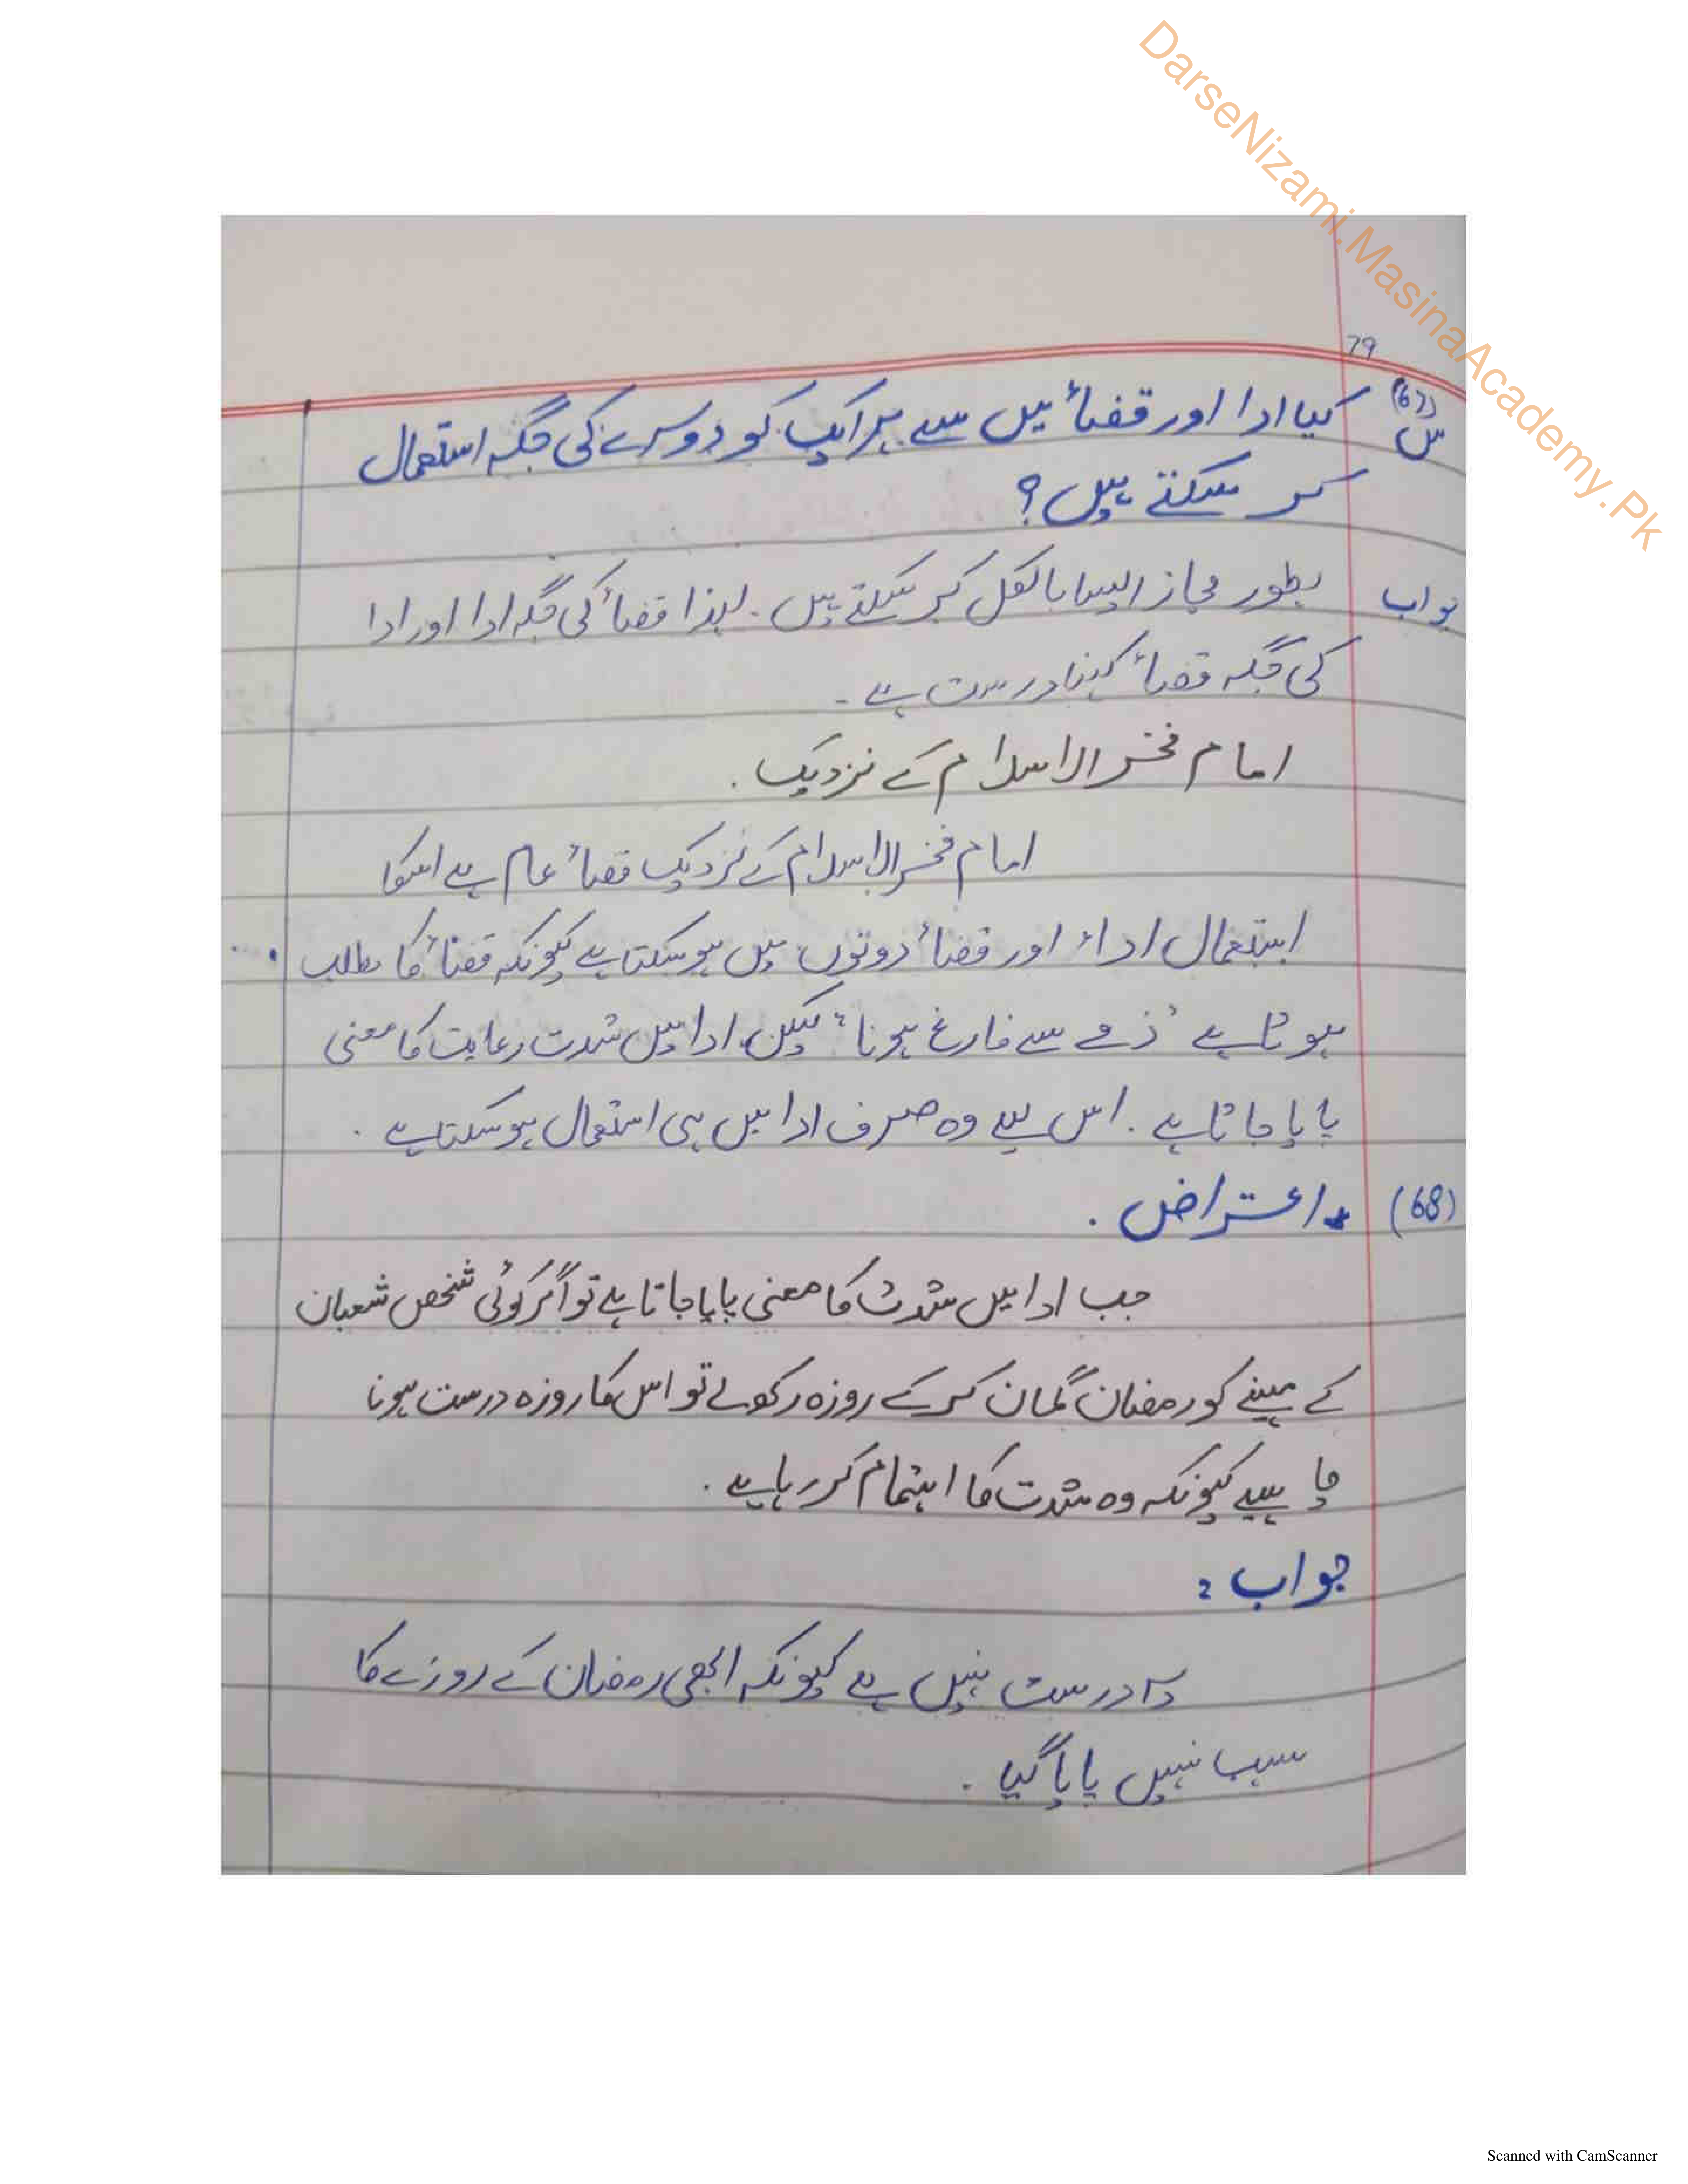 DarseNizami.MasinaAcademy.Pk
79
(67)
س کیا ادا اور قضاء میں سے ہر ایک کو دوسرے کی جگہ استعمال
کر سکتے ہیں؟
جواب بطور مجاز ایسا بالکل کر سکتے ہیں۔ لہذا قضاء کی جگہ ادا اور ادا
کی جگہ قضاء کہنا درست ہے۔
امام فخر الاسلام کے نزدیک۔
امام فخر الاسلام کے نزدیک قضاء عام ہے اسکا
استعمال اداء اور قضاء دونوں میں ہو سکتا ہے کیونکہ قضاء کا مطلب
ہوتا ہے "ذمے سے فارغ ہونا" لیکن ادا میں شدت رعایت کا معنی
پایا جاتا ہے۔ اس لیے وہ صرف ادا میں ہی استعمال ہو سکتا ہے۔
(68) اعتراض۔
جب ادا میں شدت کا معنی پایا جاتا ہے تو اگر کوئی شخص شعبان
کے مہینے کو رمضان گمان کر کے روزہ رکھ لے تو اس کا روزہ درست ہونا
چاہیے کیونکہ وہ شدت کا اہتمام کر رہا ہے۔
جواب:
یہ درست نہیں ہے کیونکہ ابھی رمضان کے روزے کا
سبب نہیں پایا گیا۔
Scanned with CamScanner